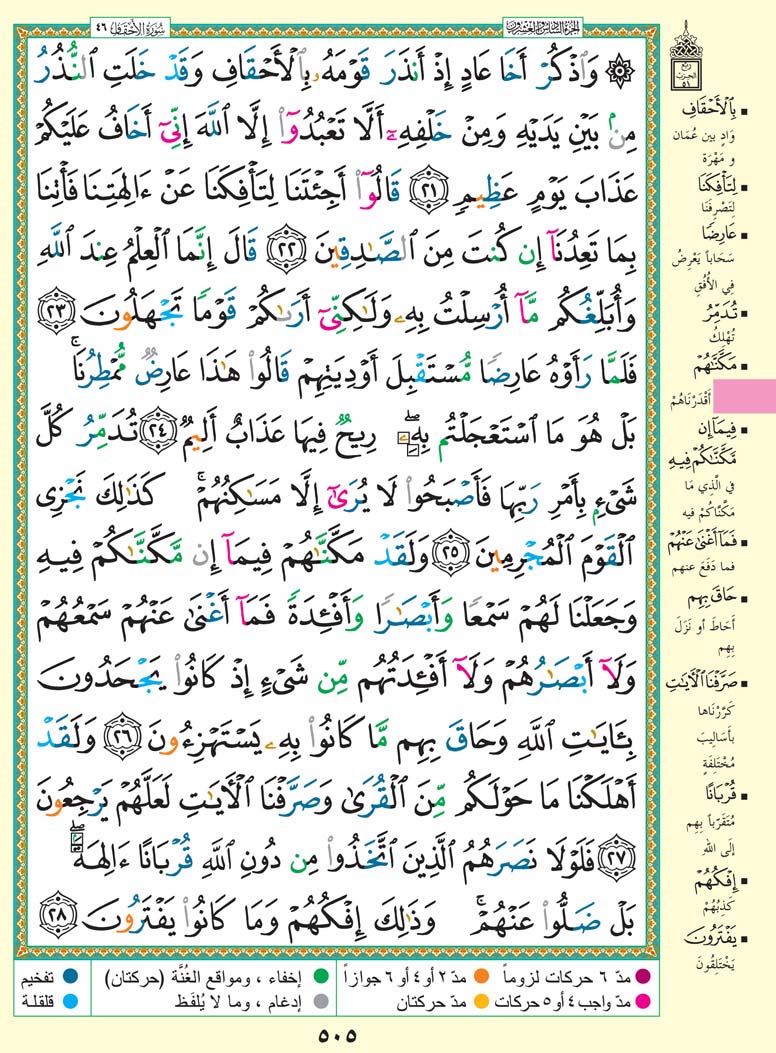 الجزء السادس والعشرون
سُورَةُ الأَحْقَافِ ٤٦
۞ وَٱذْكُرْ أَخَا عَادٍ إِذْ أَنذَرَ قَوْمَهُۥ بِٱلْأَحْقَافِ وَقَدْ خَلَتِ ٱلنُّذُرُ
مِنۢ بَيْنِ يَدَيْهِ وَمِنْ خَلْفِهِۦٓ أَلَّا تَعْبُدُوٓا۟ إِلَّا ٱللَّهَ إِنِّىٓ أَخَافُ عَلَيْكُمْ
عَذَابَ يَوْمٍ عَظِيمٍ ٢١ قَالُوٓا۟ أَجِئْتَنَا لِتَأْفِكَنَا عَنْ ءَالِهَتِنَا فَأْتِنَا
بِمَا تَعِدُنَآ إِن كُنتَ مِنَ ٱلصَّـٰدِقِينَ ٢٢ قَالَ إِنَّمَا ٱلْعِلْمُ عِندَ ٱللَّهِ
وَأُبَلِّغُكُم مَّآ أُرْسِلْتُ بِهِۦ وَلَـٰكِنِّىٓ أَرَىٰكُمْ قَوْمًا تَجْهَلُونَ ٢٣
فَلَمَّا رَأَوْهُ عَارِضًا مُّسْتَقْبِلَ أَوْدِيَتِهِمْ قَالُوا۟ هَـٰذَا عَارِضٌ مُّمْطِرُنَا ۚ
بَلْ هُوَ مَا ٱسْتَعْجَلْتُم بِهِۦ ۖ رِيحٌ فِيهَا عَذَابٌ أَلِيمٌ ٢٤ تُدَمِّرُ كُلَّ
شَىْءٍۭ بِأَمْرِ رَبِّهَا فَأَصْبَحُوا۟ لَا يُرَىٰٓ إِلَّا مَسَـٰكِنُهُمْ ۚ كَذَٰلِكَ نَجْزِى
ٱلْقَوْمَ ٱلْمُجْرِمِينَ ٢٥ وَلَقَدْ مَكَّنَّـٰهُمْ فِيمَآ إِن مَّكَّنَّـٰكُمْ فِيهِ
وَجَعَلْنَا لَهُمْ سَمْعًا وَأَبْصَـٰرًا وَأَفْـِٔدَةً فَمَآ أَغْنَىٰ عَنْهُمْ سَمْعُهُمْ
وَلَآ أَبْصَـٰرُهُمْ وَلَآ أَفْـِٔدَتُهُم مِّن شَىْءٍ إِذْ كَانُوا۟ يَجْحَدُونَ
بِـَٔايَـٰتِ ٱللَّهِ وَحَاقَ بِهِم مَّا كَانُوا۟ بِهِۦ يَسْتَهْزِءُونَ ٢٦ وَلَقَدْ
أَهْلَكْنَا مَا حَوْلَكُم مِّنَ ٱلْقُرَىٰ وَصَرَّفْنَا ٱلْـَٔايَـٰتِ لَعَلَّهُمْ يَرْجِعُونَ
٢٧ فَلَوْلَا نَصَرَهُمُ ٱلَّذِينَ ٱتَّخَذُوا۟ مِن دُونِ ٱللَّهِ قُرْبَانًا ءَالِهَةًۢ ۖ
بَلْ ضَلُّوا۟ عَنْهُمْ ۚ وَذَٰلِكَ إِفْكُهُمْ وَمَا كَانُوا۟ يَفْتَرُونَ ٢٨
ربع
الحزب
٥١
▪ بِٱلْأَحْقَافِ
وَادٍ بين عُمَان
و مَهْرَة
▪ لِتَأْفِكَنَا
لِتَصْرِفَنَا
▪ عَارِضًا
سَحَاباً يَعْرِضُ
فِي الأُفُقِ
▪ تُدَمِّرُ
تُهْلِكُ
▪ مَكَّنَّـٰهُمْ
أَقْدَرْنَاهُمْ
▪ فِيمَآ إِن
مَّكَّنَّـٰكُمْ فِيهِ
في الَّذِي مَا
مَكَّنَّاكُمْ فيه
▪ فَمَآ أَغْنَىٰ عَنْهُمْ
فما دَفَعَ عنهم
▪ حَاقَ بِهِم
أَحَاطَ أو نَزَلَ
بِهِم
▪ صَرَّفْنَا ٱلْـَٔايَـٰتِ
كَرَّرْنَاها
بأَسَالِيبَ
مُخْتَلِفَةٍ
▪ قُرْبَانًا
مُتَقَرَّباً بِهِم
إلَى اللهِ
▪ إِفْكُهُمْ
كَذِبُهُمْ
▪ يَفْتَرُونَ
يَخْتَلِقُونَ
مدّ ٦ حركات لزوماً
مدّ ٢ أو ٤ أو ٦ جوازاً
إخفاء ، ومواقع الغُنَّة (حركتان)
تفخيم
مدّ واجب ٤ أو ٥ حركات
مدّ حركتان
إدغام ، وما لا يُلفَظ
قلقلة
٥٠٥